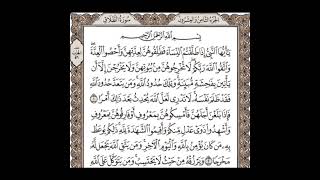 الجزء الثامن والعشرون سورة الطلاق
بسم الله الرحمن الرحيم
يَٰٓأَيُّهَا ٱلنَّبِىُّ إِذَا طَلَّقْتُمُ ٱلنِّسَآءَ فَطَلِّقُوهُنَّ لِعِدَّتِهِنَّ وَأَحْصُوا۟ ٱلْعِدَّةَ
وَٱتَّقُوا۟ ٱللَّهَ رَبَّكُمْ لَا تُخْرِجُوهُنَّ مِنۢ بُيُوتِهِنَّ وَلَا يَخْرُجْنَ إِلَّآ أَن
يَأْتِينَ بِفَٰحِشَةٍ مُّبَيِّنَةٍ وَتِلْكَ حُدُودُ ٱللَّهِ وَمَن يَتَعَدَّ حُدُودَ ٱللَّهِ
فَقَدْ ظَلَمَ نَفْسَهُۥ لَا تَدْرِى لَعَلَّ ٱللَّهَ يُحْدِثُ بَعْدَ ذَٰلِكَ أَمْرًا ١
فَإِذَا بَلَغْنَ أَجَلَهُنَّ فَأَمْسِكُوهُنَّ بِمَعْرُوفٍ أَوْ فَارِقُوهُنَّ بِمَعْرُوفٍ
وَأَشْهِدُوا۟ ذَوَىْ عَدْلٍ مِّنكُمْ وَأَقِيمُوا۟ ٱلشَّهَٰدَةَ لِلَّهِ ذَٰلِكُمْ يُوعَظُ
بِهِۦ مَن كَانَ يُؤْمِنُ بِٱللَّهِ وَٱلْيَوْمِ ٱلْءَاخِرِ وَمَن يَتَّقِ ٱللَّهَ يَجْعَل لَّهُۥ
مَخْرَجًا ٢ وَيَرْزُقْهُ مِنْ حَيْثُ لَا يَحْتَسِبُ وَمَن يَتَوَكَّلْ عَلَى ٱللَّهِ